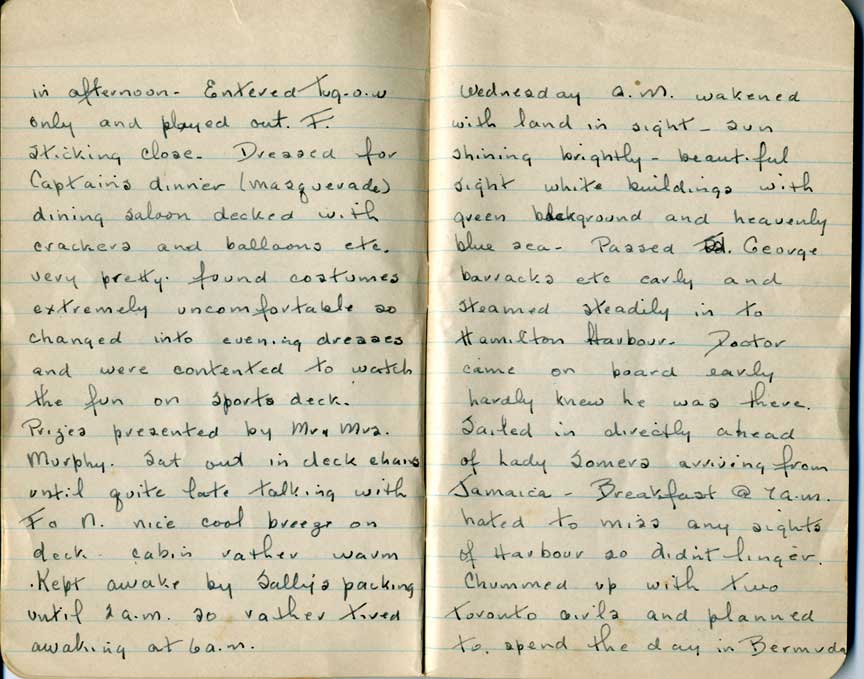 in afternoon - Entered tug-o-w
only and played out. F.
sticking close. Dressed for
Captain's dinner (masquerade)
dining saloon decked with
crackers and balloons etc.
very pretty. found costumes
extremely uncomfortable so
changed into evening dresses
and were contented to watch
the fun on sports deck.
Prizes presented by Mr. Mrs.
Murphy. Sat out in deck chairs
until quite late talking with
F N. nice cool breeze on
deck - cabin rather warm
. Kept awake by Sally's packing
until 2 a.m. so rather tired
awaking at 6 a.m.
Wednesday a.m. wakened
with land in sight - sun
shining brightly - beautiful
sight white buildings with
green background and heavenly
blue sea - Passed George
barracks etc early and
steamed steadily in to
Hamilton Harbour - Doctor
came on board early
hardly knew he was there.
Sailed in directly ahead
of Lady Somers arriving from
Jamaica - Breakfast @ 7 a.m.
hated to miss any sights
of Harbour so didn't linger.
Chummed up with two
Toronto girls and planned
to spend the day in Bermuda